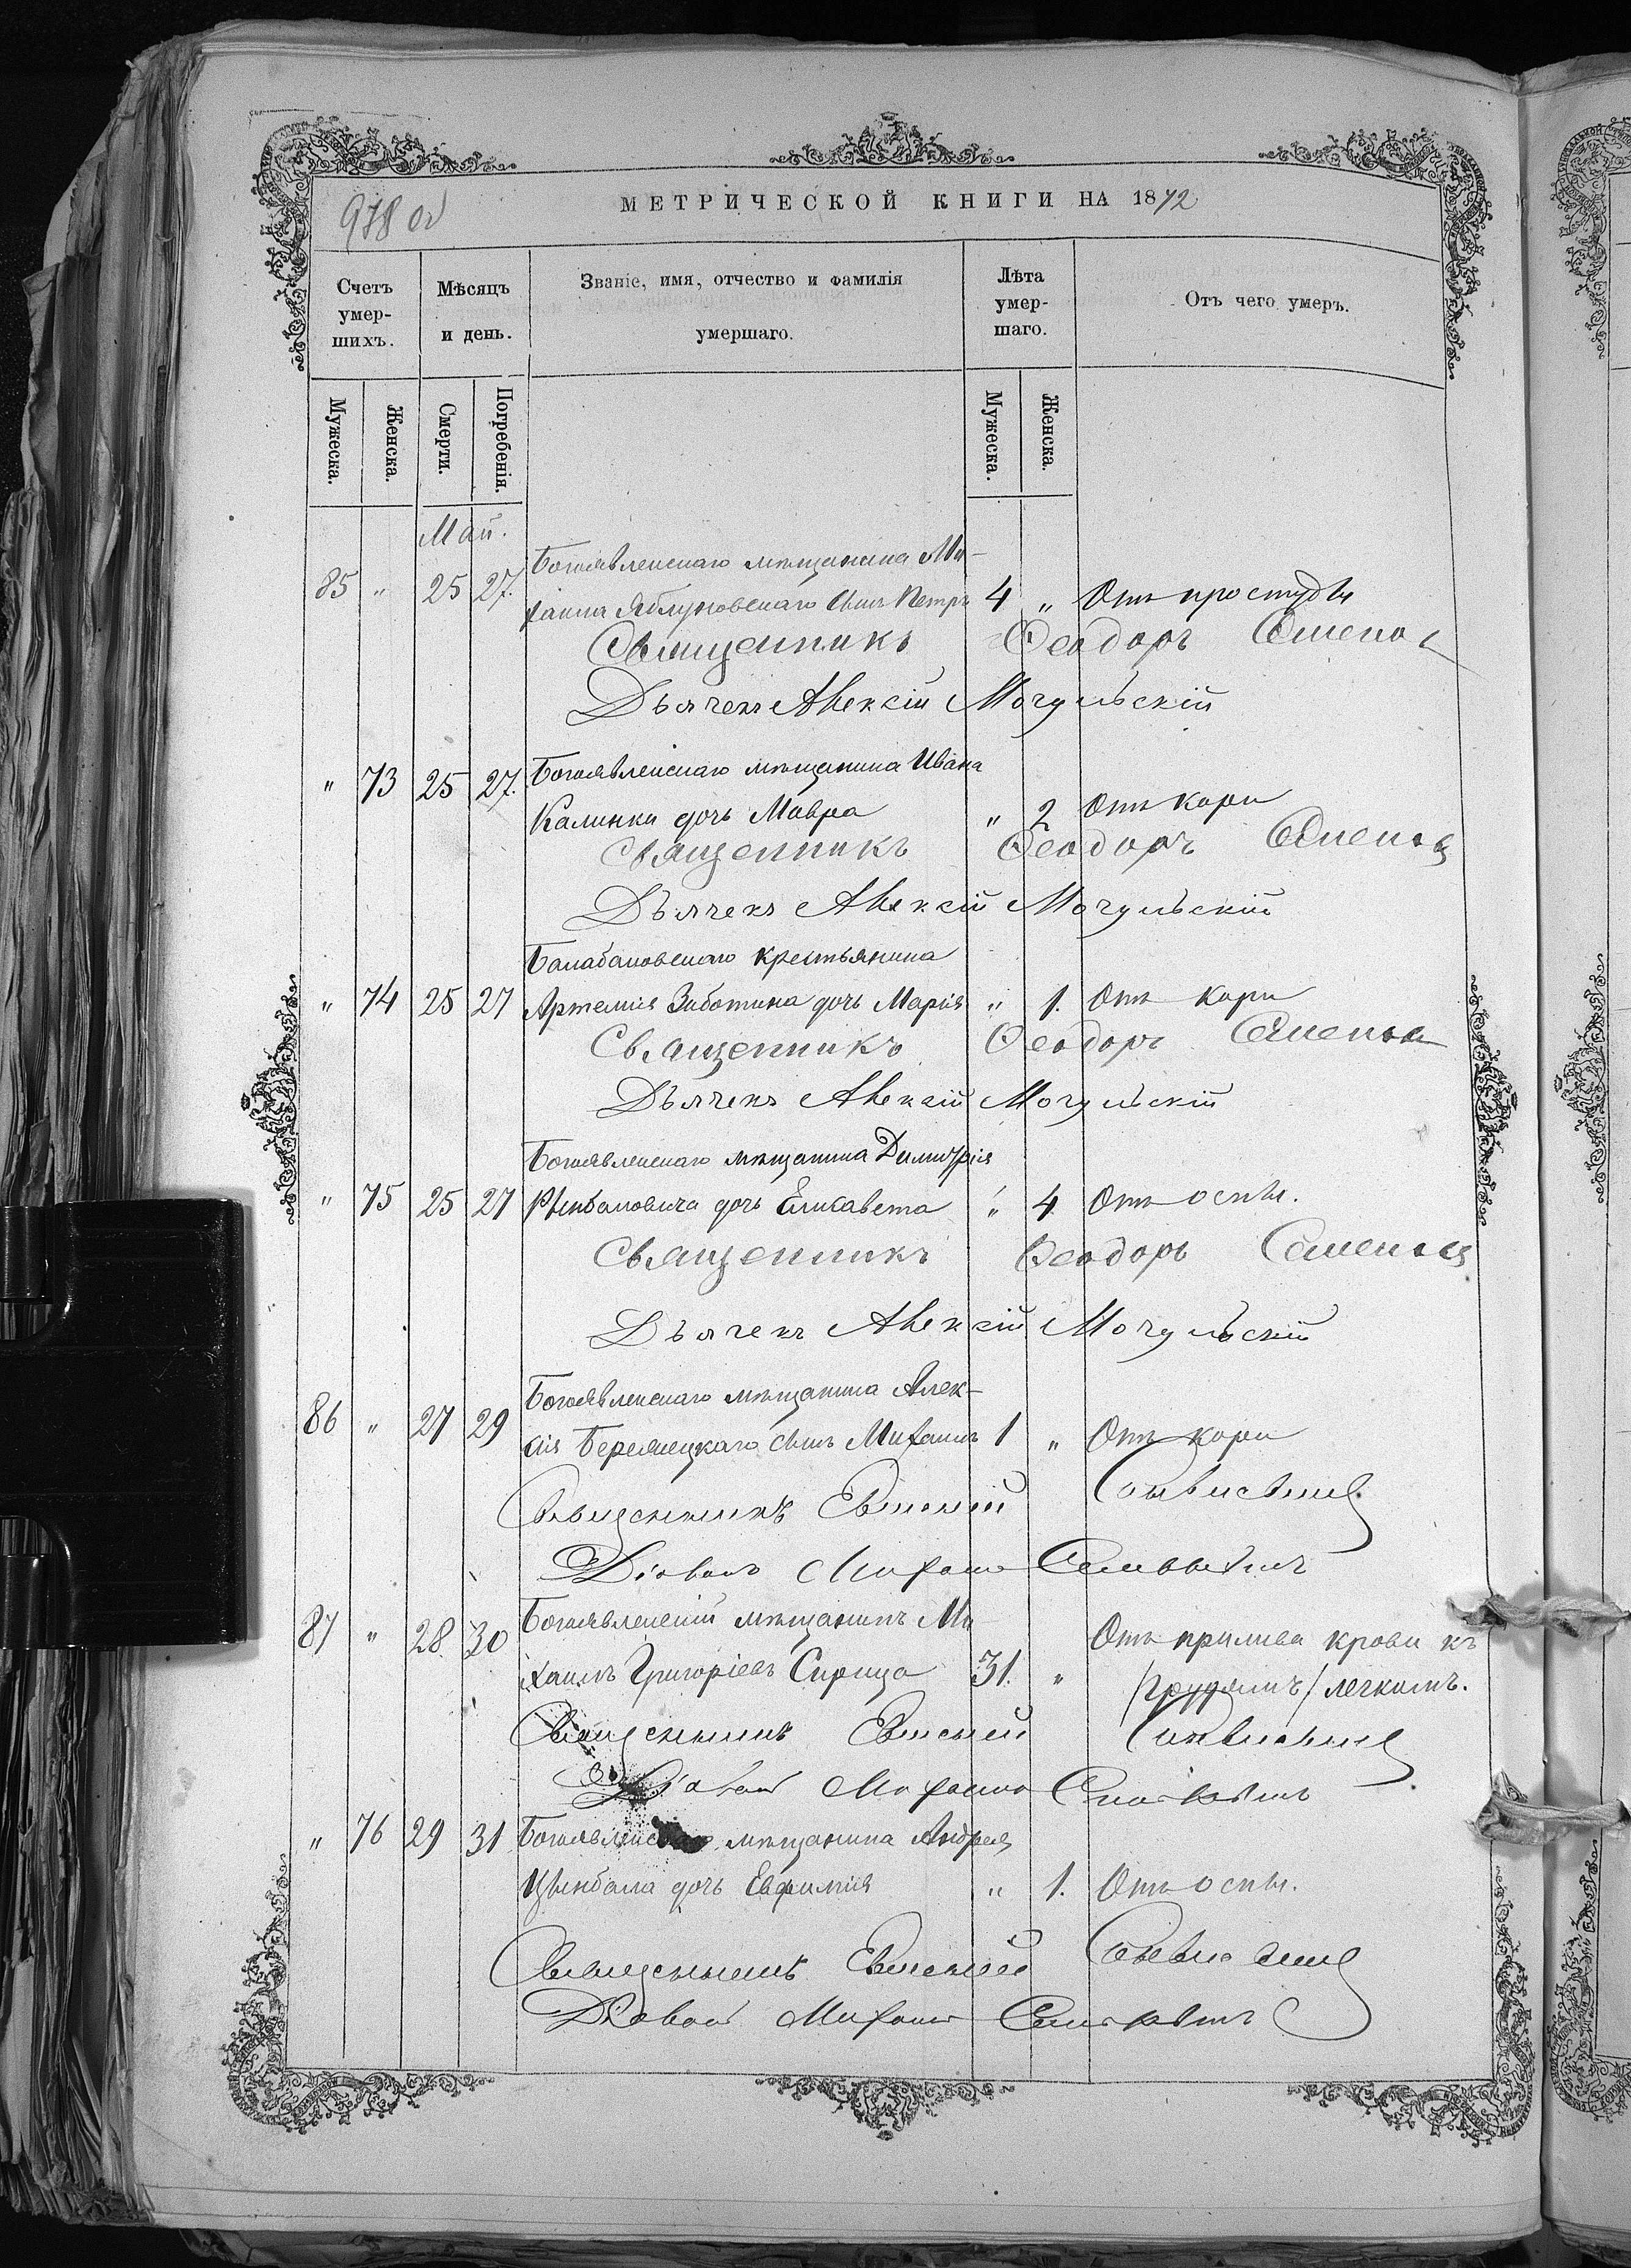 978 об
МЕТРИЧЕСКОЙ КНИГИ НА 1872
Счетъ умер-шихъ.
Мѣсяцъ и день.
Званіе, имя, отчество и фамилія умершаго.
Лѣта умер-шаго.
Отъ чего умеръ.
Мужеска.
Женска.
Смерти.
Погребенія.
Мужеска.
Женска.
Май.
Богоявленскаго мѣщанина Ми-
85 " 25 27. хаила Яблуновскаго сынъ Петръ 4 " Отъ простуды
Священникъ Феодоръ
Дьячекъ Алексій Мочульскій
Богоявленскаго мѣщанина Ивана
" 73 25 27. Калинки дочь Мавра " 2 Отъ кори
Священникъ Феодоръ
Дьячекъ Алексій Мочульскій
Балабановскаго крестьянина
" 74 25 27 Артемія Заботина дочь Марія " 1. Отъ кори
Священникъ Феодоръ
Дьячекъ Алексій Мочульскій
Богоявленскаго мѣщанина Димитрія
" 75 25 27 дочь Елисавета " 4 Отъ оспы.
Священникъ Феодоръ
Дьячекъ Алексій Мочульскій
Богоявленскаго мѣщанина Алек-
86 " 27 29 сія сынъ Михаилъ 1 " Отъ кори
Священникъ Евгеній
Діаконъ Михаилъ
Богоявленскій мѣщанинъ Ми-
87 " 28. 30 хаилъ Григоріевъ Сирица 31. " Отъ прилива крови къ
/грудямъ/ легкимъ.
Священникъ Евгеній
Діаконъ Михаилъ
" 76 29 31 Богоявленскаго мѣщанина Андрея
Цымбала дочь Евфимія " 1. Отъ оспы.
Священникъ Евгеній
Діаконъ Михаилъ